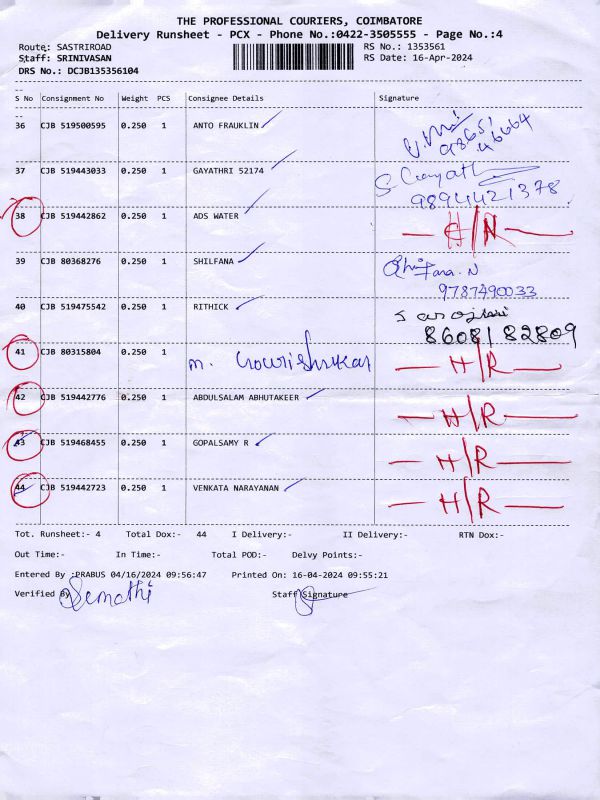 THE PROFESSIONAL COURIERS, COIMBATORE
Delivery Runsheet - PCX - Phone No.:0422-3505555 - Page No.:4
Route: SASTRIROAD RS No.: 1353561
Staff: SRINIVASAN RS Date: 16-Apr-2024
DRS No.: DCJB135356104
--
S No Consignment No Weight PCS Consignee Details Signature
--
36 CJB 519500595 0.250 1 ANTO FRAUKLIN 98651 46664
37 CJB 519443033 0.250 1 GAYATHRI 52174 S Gayath 9894421378
38 CJB 519442862 0.250 1 ADS WATER
39 CJB 80368276 0.250 1 SHILFANA Shilfana.N 9787490033
40 CJB 519475542 0.250 1 RITHICK S arojini 8608182809
41 CJB 80315804 0.250 1 m. Gowrishankar H/R
42 CJB 519442776 0.250 1 ABDULSALAM ABHUTAKEER H/R
43 CJB 519468455 0.250 1 GOPALSAMY R H/R
44 CJB 519442723 0.250 1 VENKATA NARAYANAN H/R
Tot. Runsheet:- 4 Total Dox:- 44 I Delivery:- II Delivery:- RTN Dox:-
Out Time:- In Time:- Total POD:- Delvy Points:-
Entered By :PRABUS 04/16/2024 09:56:47 Printed On: 16-04-2024 09:55:21
Verified By Sumathi Staff Signature